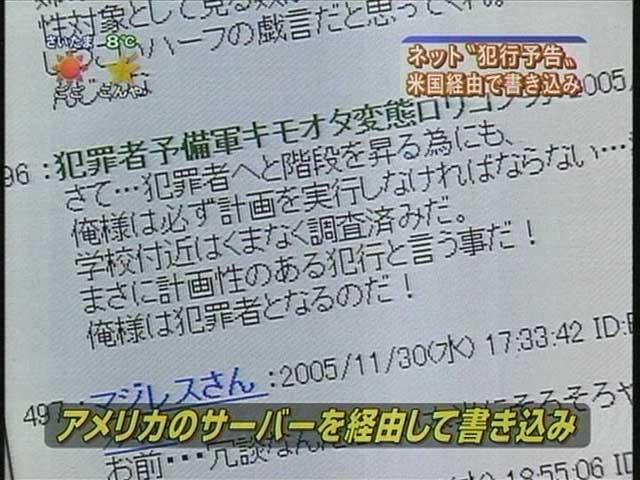 性対象として見る
ハーフの戯言だと思ってくれ。
さいたま 8℃
ネット〝犯行予告〟
米国経由で書き込み
96 :犯罪者予備軍キモオタ変態ロリコン 2005/
さて…犯罪者へと階段を昇る為にも、
俺様は必ず計画を実行しなければならない…
学校付近はくまなく調査済みだ。
まさに計画性のある犯行と言う事だ!
俺様は犯罪者となるのだ!
497 :マジレスさん :2005/11/30(水) 17:33:42 ID:
アメリカのサーバーを経由して書き込み
お前・・・冗談なんだ
(水) 18:55:06 ID